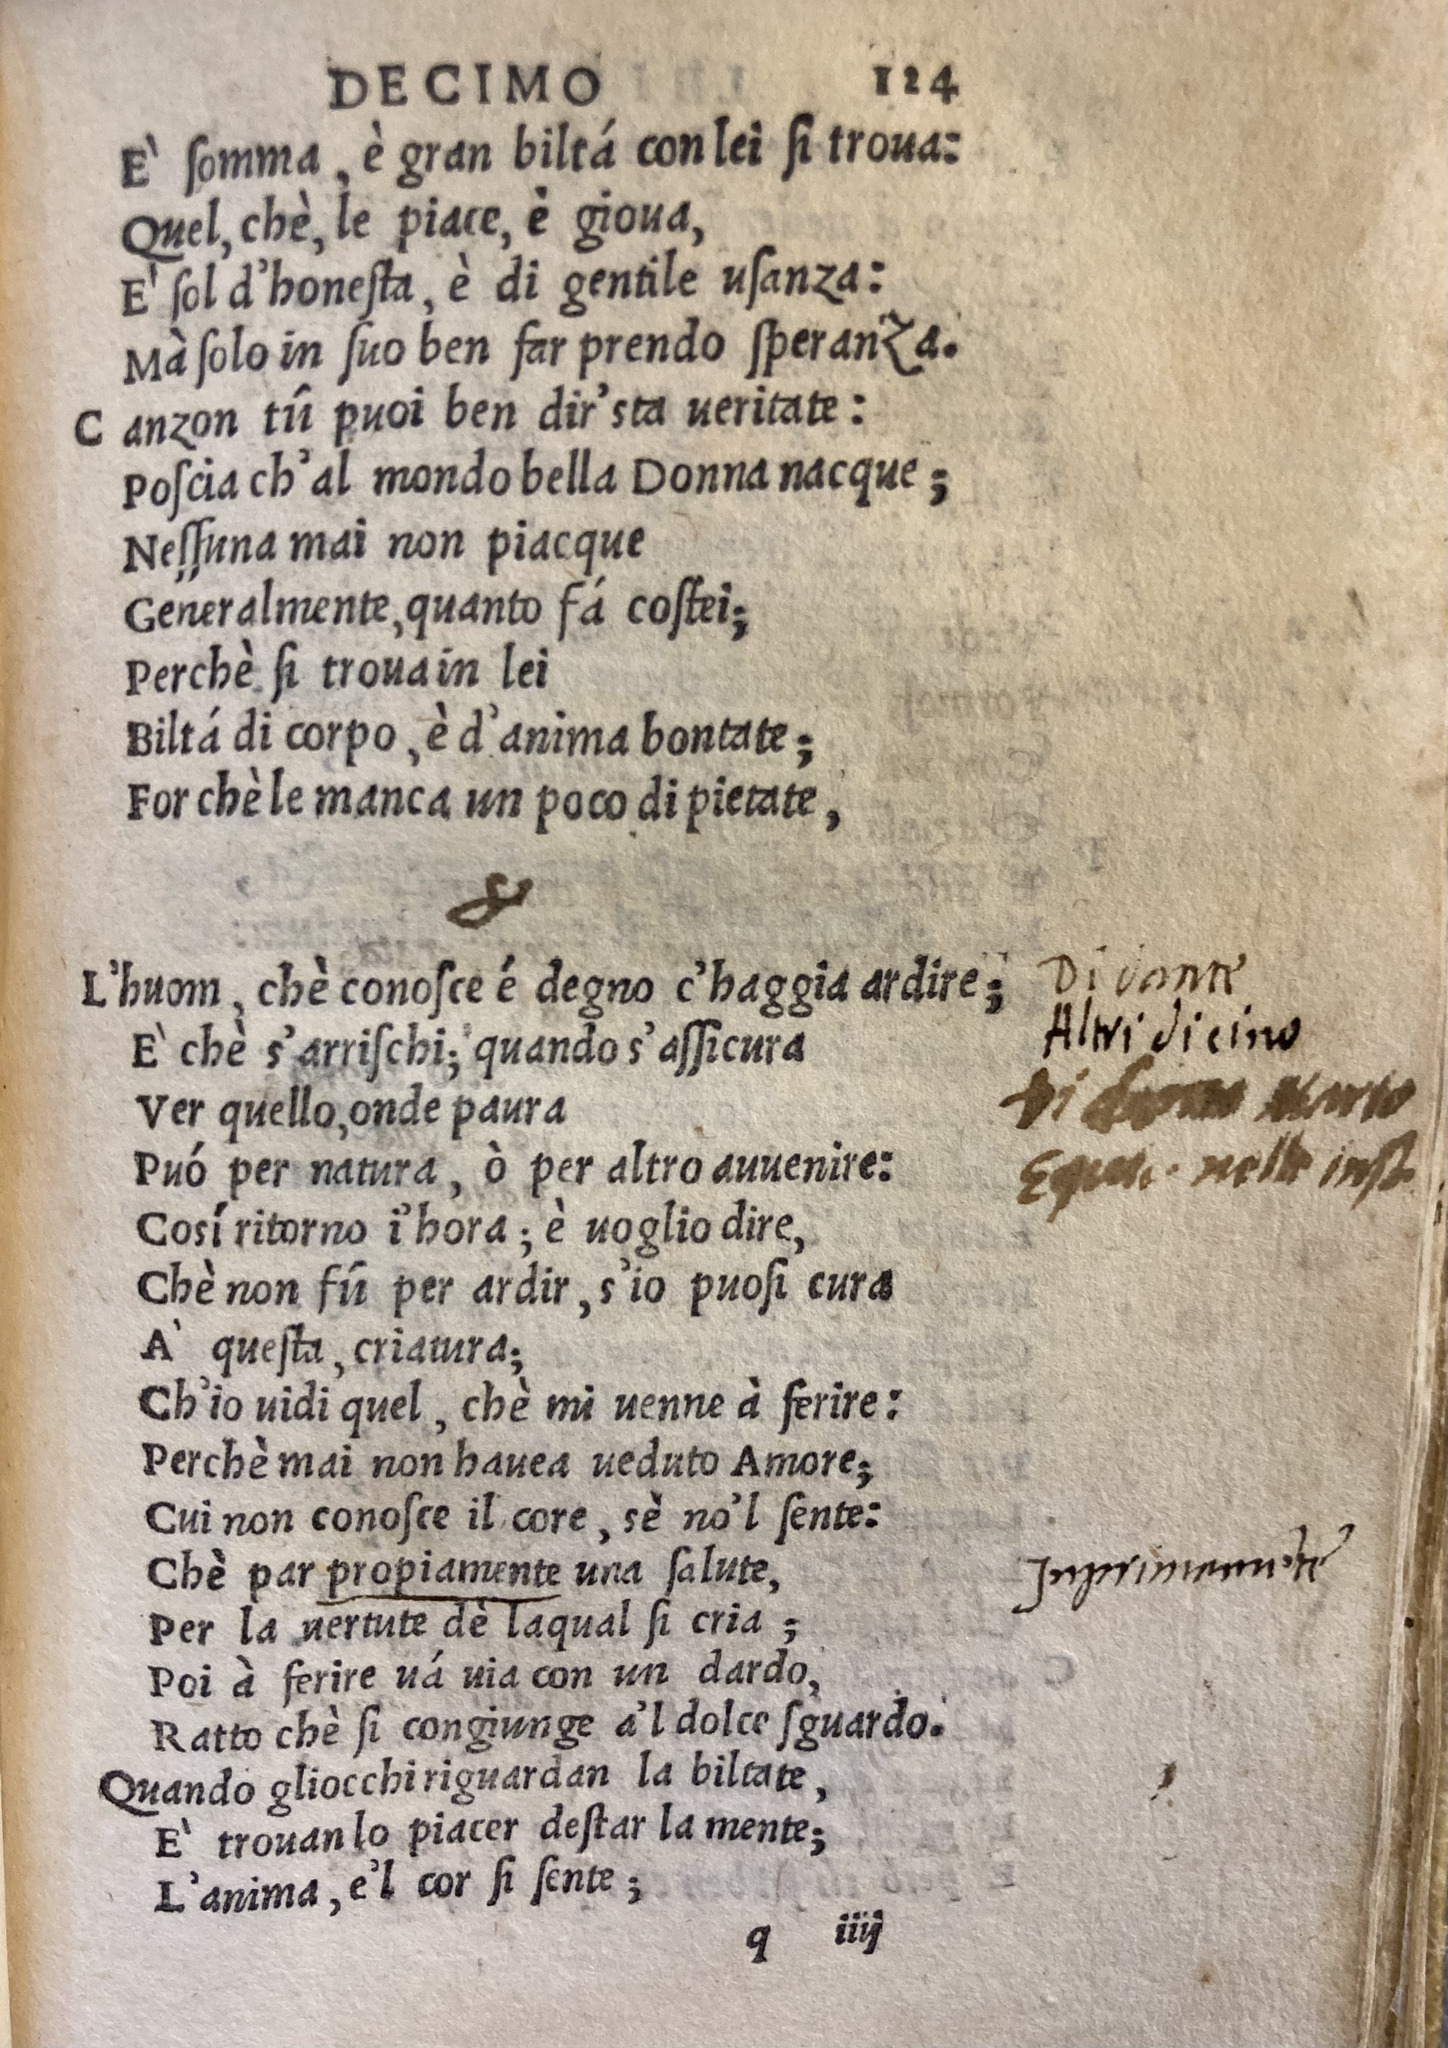 DECIMO 124
E' ſomma, è gran biltá con lei ſi troua:
Quel, chè, le piace, è gioua,
E' ſol d'honeſta, è di gentile uſanza:
Mà ſolo in ſuo ben far prendo ſperanza.
Canzon tú puoi ben dir'sta ueritate:
Poſcia ch'al mondo bella Donna nacque;
Neſſuna mai non piacque
Generalmente, quanto fá coſtei;
Perchè ſi troua in lei
Biltá di corpo, è d'anima bontate;
For chè le manca un poco di pietate,
&
L'huom, chè conoſce é degno c'haggia ardire; Di Dante
E' chè s'arriſchi; quando s'aſſicura Altri di cino
Ver quello, onde paura Di
Puó per natura, ò per altro auuenire: nelle inſt
Cosí ritorno i'hora; è uoglio dire,
Chè non fú per ardir, s'io puoſi cura
A' queſta, criatura;
Ch'io uidi quel, chè mi uenne à ferire:
Perchè mai non hauea ueduto Amore;
Cui non conoſce il core, sè no'l ſente:
Chè par propiamente una ſalute,
Per la uertute dè laqual ſi cria;
Poi à ferire uá uia con un dardo,
Ratto chè ſi congiunge a'l dolce ſguardo.
Quando gliocchi riguardan la biltate,
E' trouan lo piacer deſtar la mente;
L'anima, e'l cor ſi ſente;
q iiij